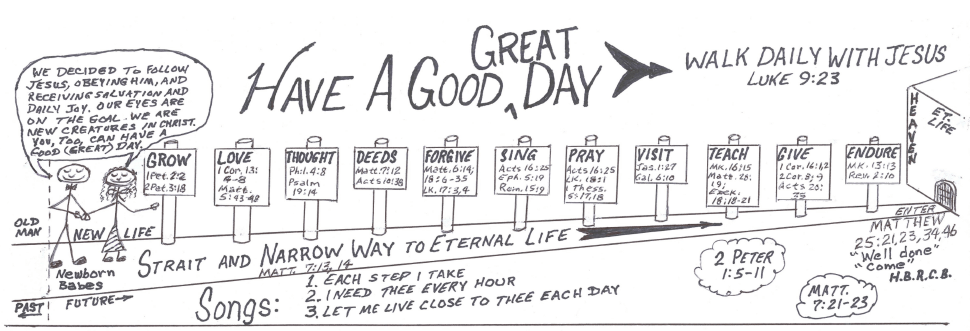 GREAT
HAVE A GOOD, DAY
WALK DAILY WITH JESUS
LUKE 9:23
WE DECIDED TO FOLLOW
JESUS, OBEYING HIM, AND
RECEIVING SALVATION AND
DAILY JOY. OUR EYES ARE
ON THE GOAL. WE ARE
NEW CREATURES IN CHRIST.
YOU, TOO, CAN HAVE A
GOOD (GREAT) DAY.
GROW
1 Pet. 2:2
2 Pet. 3:18
LOVE
1 Cor. 13:
4-8
Matt.
5:43-48
THOUGHT
Phil. 4:8
Psalm
19:14
DEEDS
Matt. 7:12
Acts 10:38
FORGIVE
Matt. 6:14;
18:6-35
LK. 17:3,4
SING
Acts 16:25
Eph. 5:19
Rom. 15:9
PRAY
Acts 16:25
LK. 18:1
1 Thess.
5:17,18
VISIT
Jas. 1:27
Gal. 6:10
TEACH
MK. 16:15
Matt. 28:
19;
Ezek.
18:18-21
GIVE
1 Cor. 16:1,2
2 Cor. 8; 9
Acts 20:
35
ENDURE
MK. 13:13
Rev. 2:10
HEAVEN
ET.
LIFE
OLD
MAN
NEW LIFE
Newborn
Babes
PAST
FUTURE
STRAIT AND NARROW WAY TO ETERNAL LIFE
MATT. 7:13, 14
Songs:
1. EACH STEP I TAKE
2. I NEED THEE EVERY HOUR
3. LET ME LIVE CLOSE TO THEE EACH DAY
2 PETER
1:5-11
MATT.
7:21-23
ENTER
MATTHEW
25:21,23,34,46
"Well done"
"Come"
H.B.R.C.B.